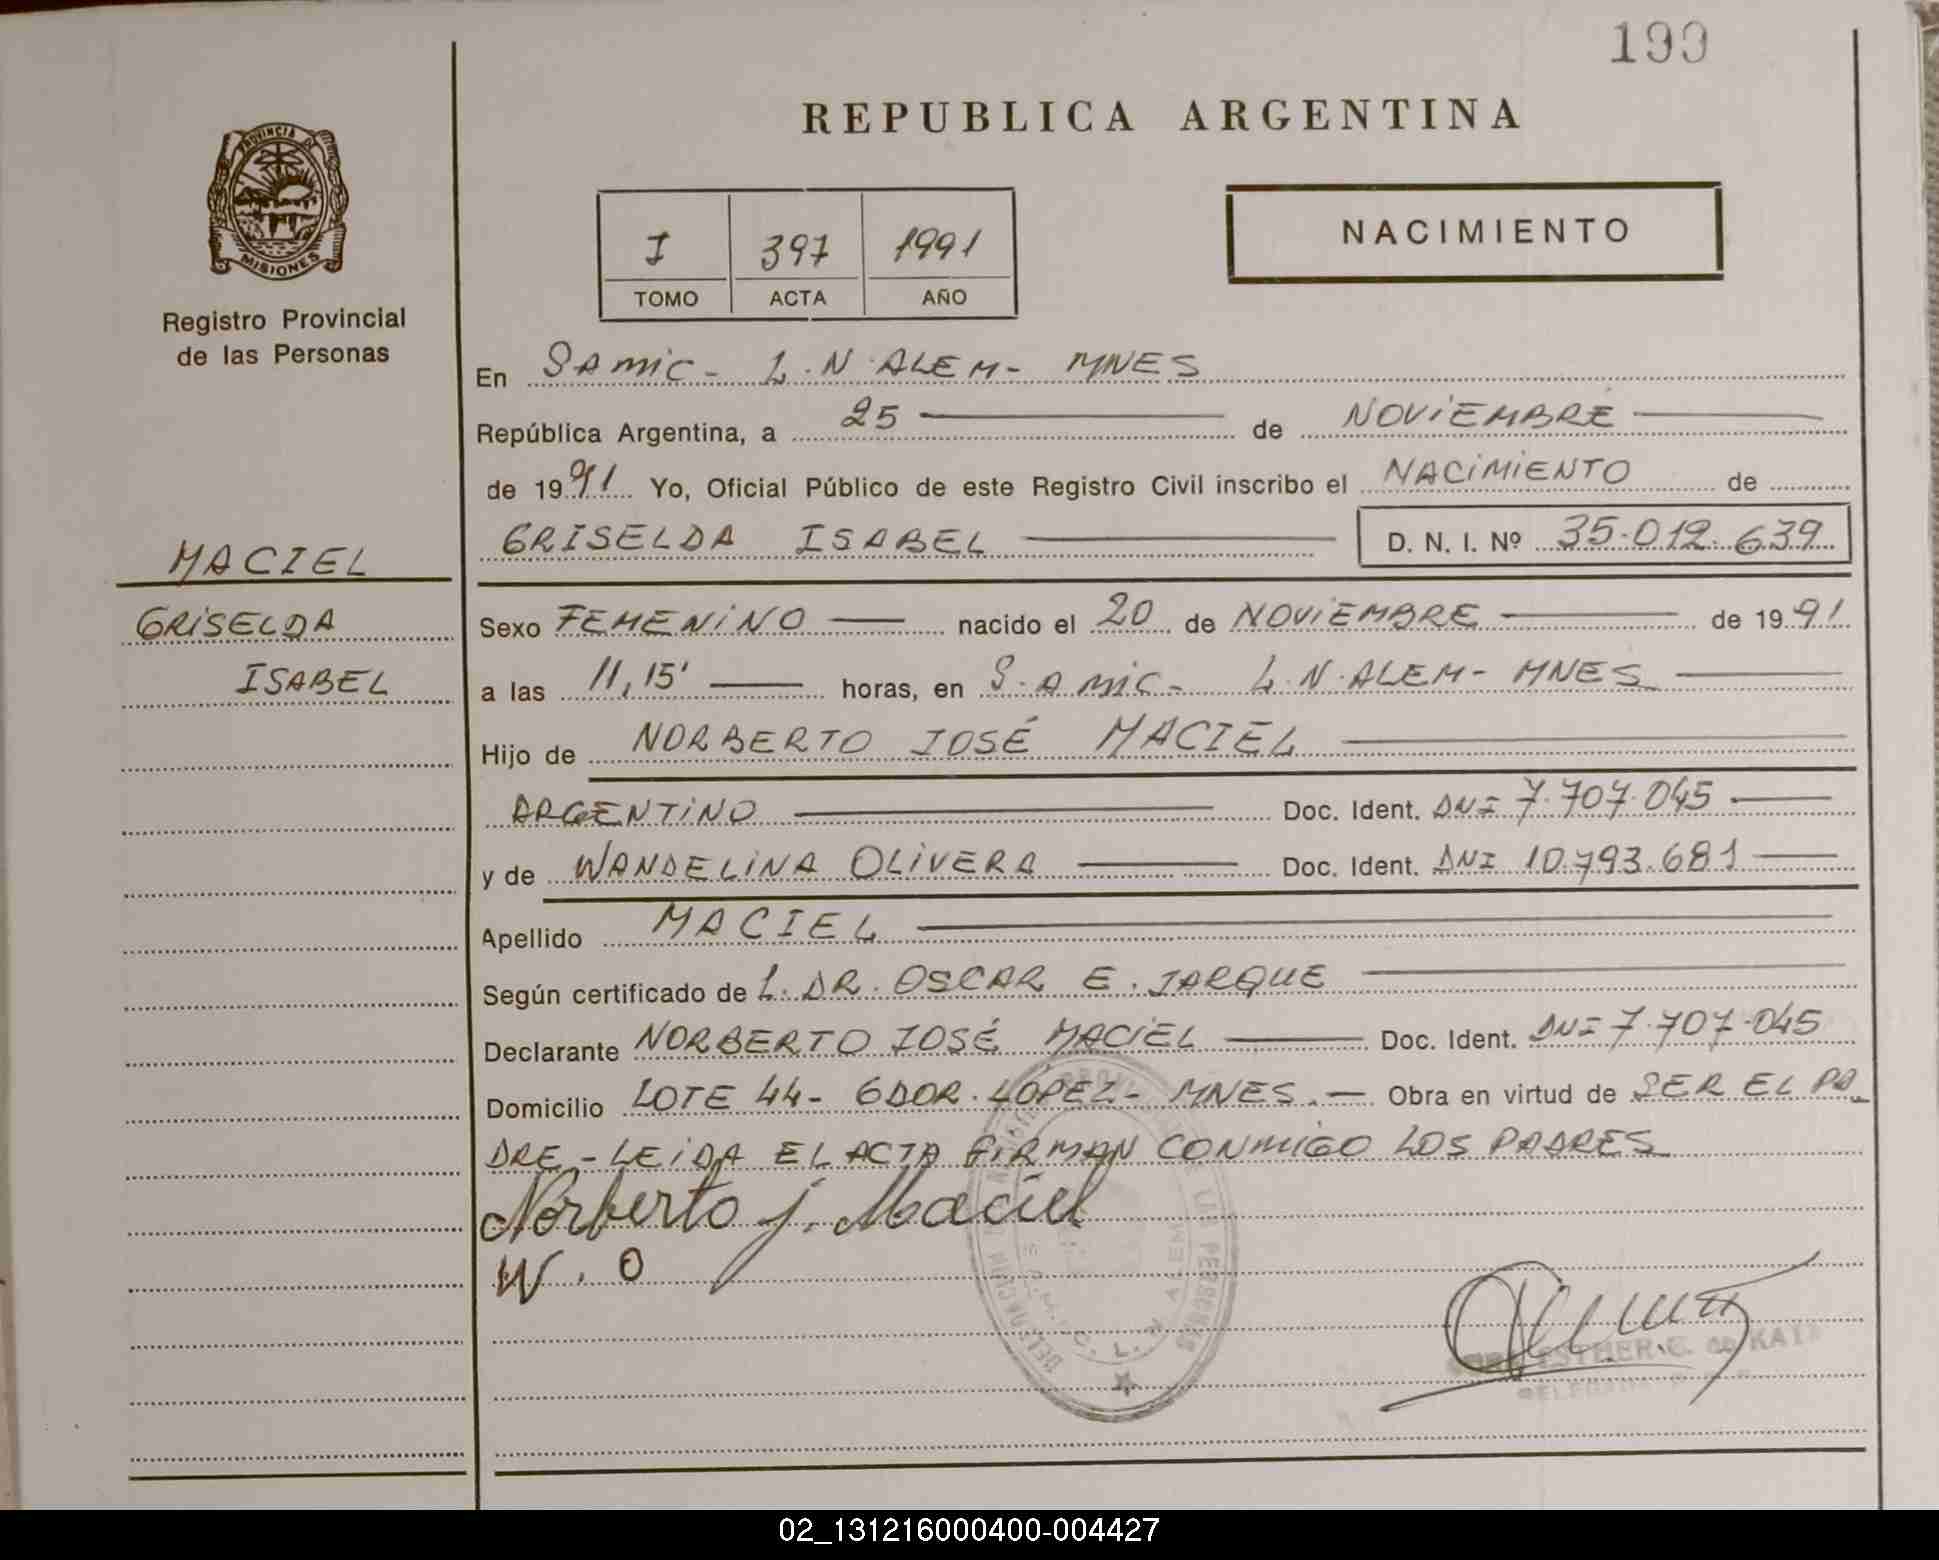 199
REPUBLICA ARGENTINA
PROVINCIA DE
MISIONES
Registro Provincial
de las Personas
I 397 1991
TOMO ACTA AÑO
NACIMIENTO
En SAMIC - L.N. ALEM - MNES
República Argentina, a 25 de NOVIEMBRE
de 1991 Yo, Oficial Público de este Registro Civil inscribo el NACIMIENTO de
GRISELDA ISABEL D. N. I. Nº 35.012.639
MACIEL
GRISELDA
ISABEL
Sexo FEMENINO nacido el 20 de NOVIEMBRE de 1991
a las 11,15' horas, en S.AMIC - L.N. ALEM - MNES
Hijo de NORBERTO JOSÉ MACIEL
ARGENTINO Doc. Ident. DNI 7.707.045
y de WANDELINA OLIVERA Doc. Ident. DNI 10.793.681
Apellido MACIEL
Según certificado de L. DR. OSCAR E. JARQUE
Declarante NORBERTO JOSÉ MACIEL Doc. Ident. DNI 7.707.045
Domicilio LOTE 44 - GDOR. LÓPEZ - MNES. - Obra en virtud de SER EL PA
DRE - LEIDA EL ACTA FIRMAN CONMIGO LOS PADRES
Norberto J. Maciel
W. O
DE LAS PERSONAS
L. N. ALEM
ESTHER
02_131216000400-004427